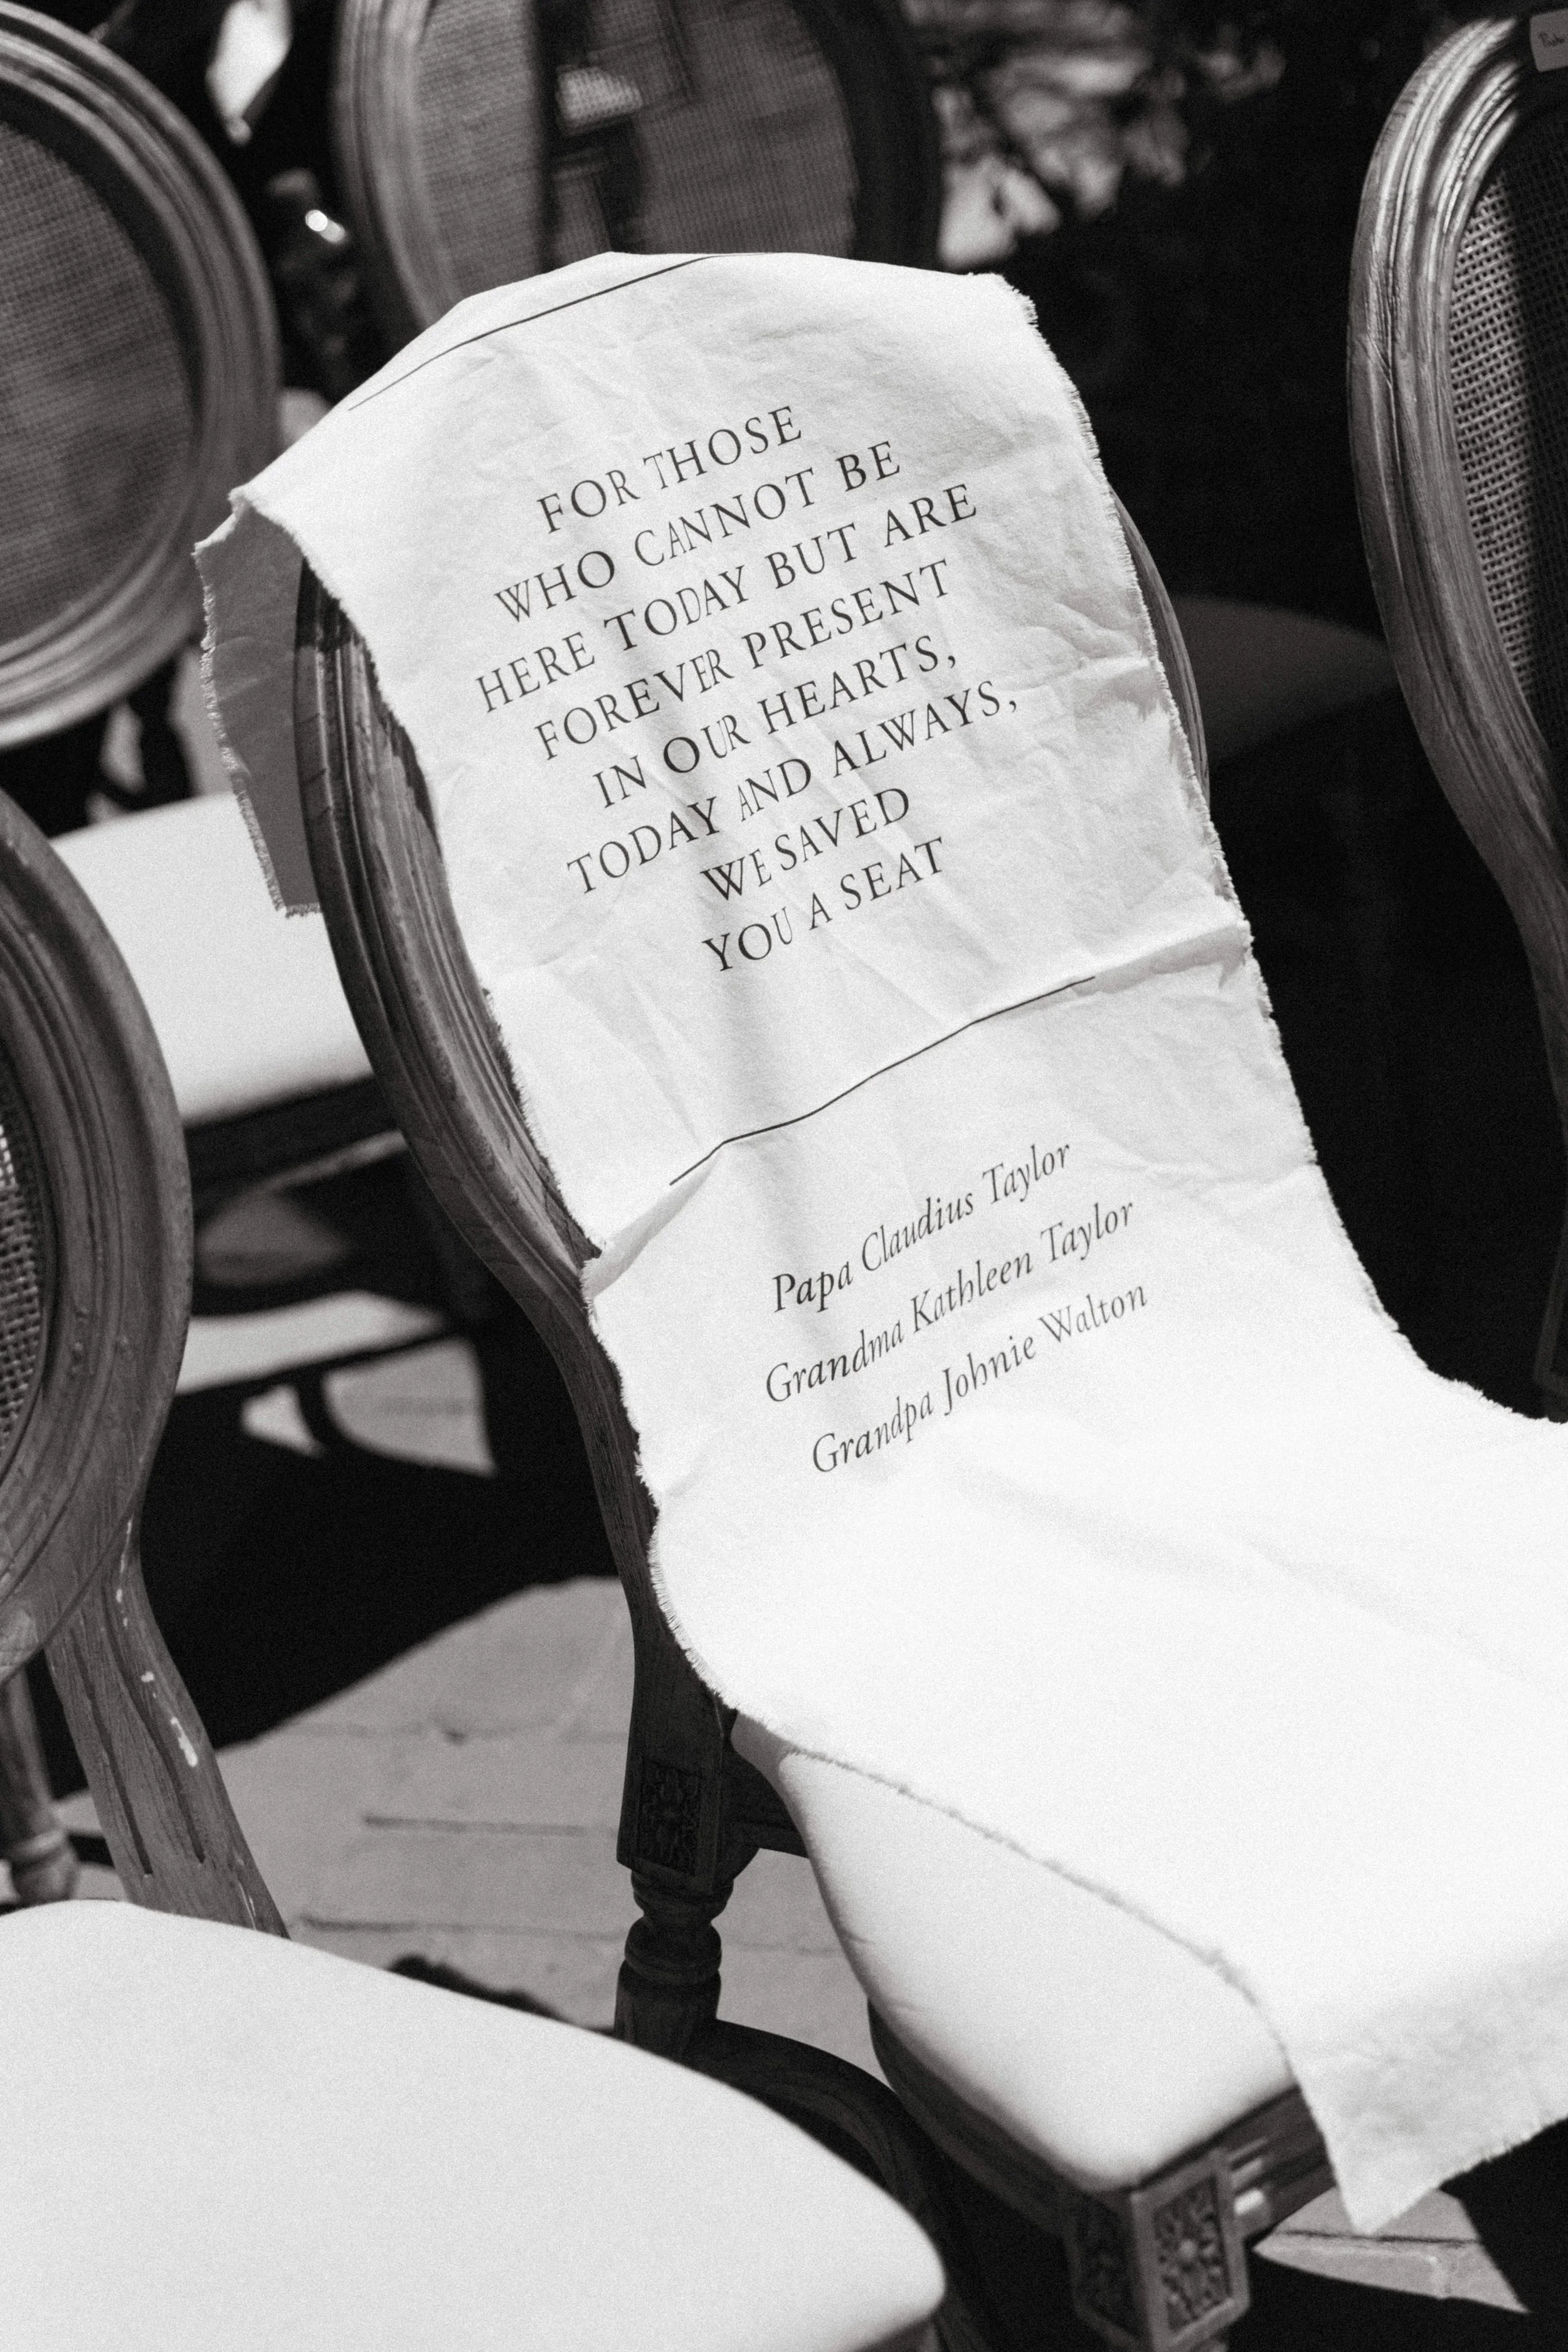 FOR THOSE
WHO CANNOT BE
HERE TODAY BUT ARE
FOREVER PRESENT
IN OUR HEARTS,
TODAY AND ALWAYS,
WE SAVED
YOU A SEAT
Papa Claudius Taylor
Grandma Kathleen Taylor
Grandpa Johnie Walton